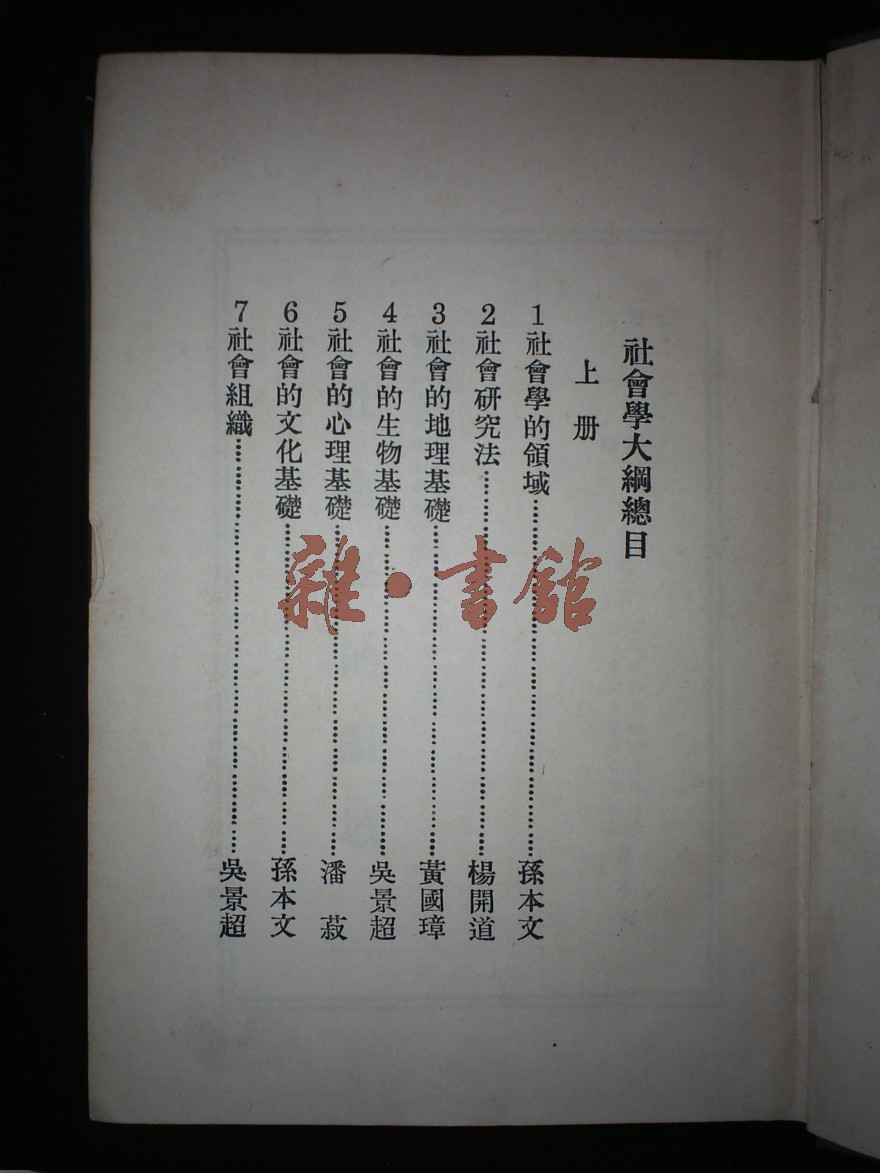 社會學大綱總目
上册
1社會學的領域……孫本文
2社會研究法……楊開道
3社會的地理基礎……黃國璋
4社會的生物基礎……吳景超
5社會的心理基礎……潘菽
6社會的文化基礎……孫本文
7社會組織……吳景超
雜·書館